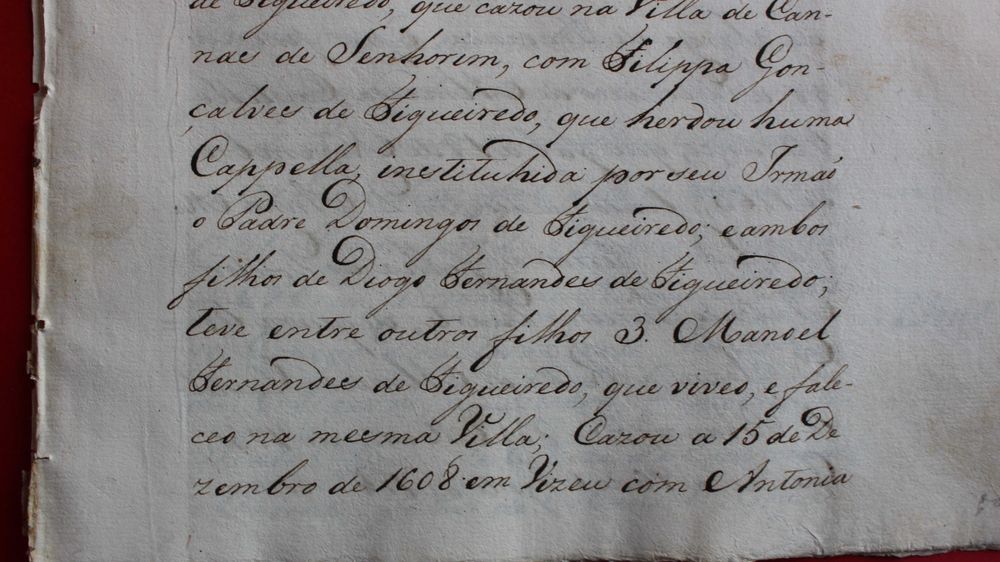 de Figueiredo, que cazou na Villa de Can-
nas de Senhorim, com Filippa Gon-
çalves de Figueiredo, que herdou huma
Cappella, instituhida por seu Irmaõ
o Padre Domingos de Figueiredo; e ambos
filhos de Diogo Fernandes de Figueiredo;
teve entre outros filhos 3. Manoel
Fernandes de Figueiredo, que viveo, e fale-
ceo na mesma Villa; Cazou a 15 de De
zembro de 1608 em Vizeu com Antonia